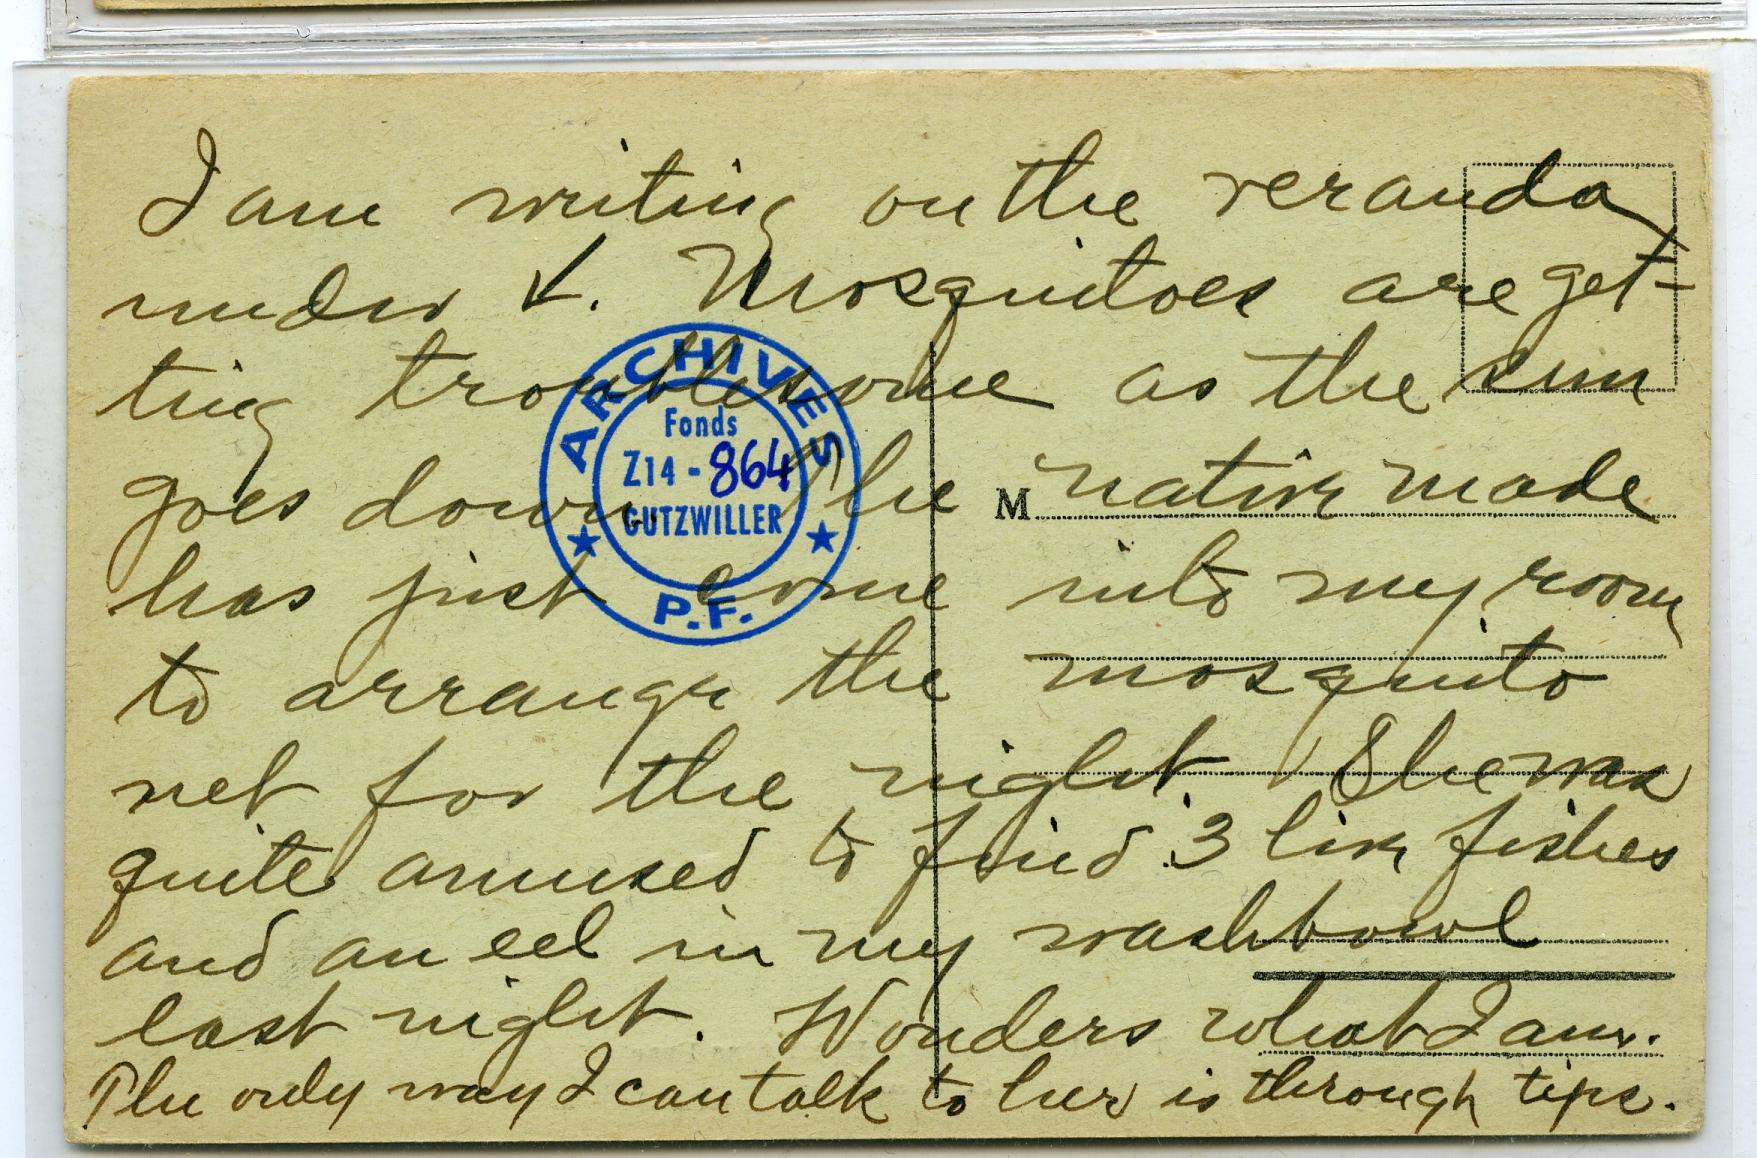 I am writing on the veranda
under ↓. Mosquitoes are get-
ting troublesome as the sun
goes down. The native made
has just come into my room
to arrange the mosquito
net for the night. She was
quite amused to find 3 live fishes
and an eel in my washbowl
last night. Wonders what I am.
The only way I can talk to her is through tips.
M
ARCHIVES
Fonds
Z14 - 864
GUTZWILLER
P.F.